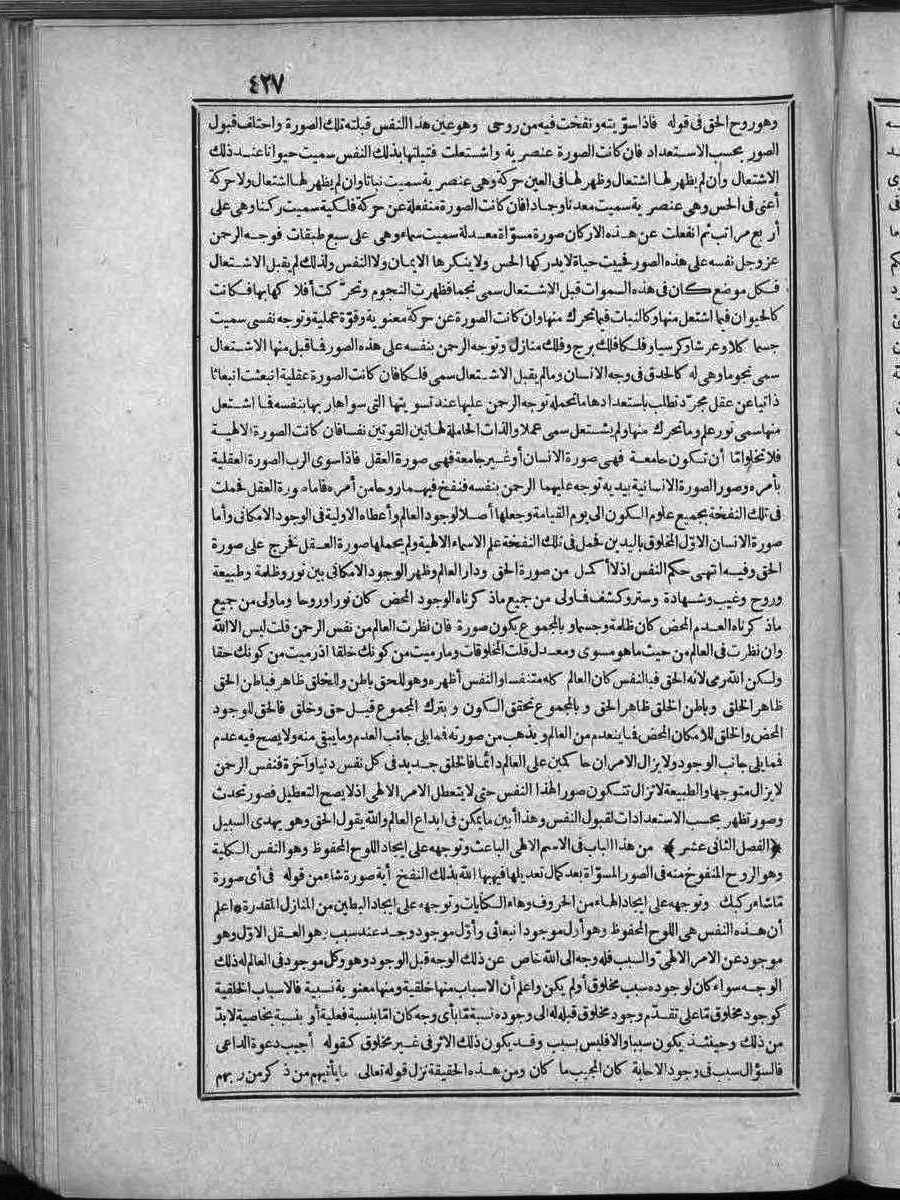 ٤٢٧
وهو روح الحق فى قوله فاذا سوّيته ونفخت فيه من روحى وهو عين هذا النفس قبلته تلك الصورة واختلف قبول
الصور بحسب الاستعداد فان كانت الصورة عنصرية واشتعلت فتيلتها بذلك النفس سميت حيوانا عند ذلك
الاشتعال وان لم يظهر لها اشتعال وظهر لها فى العين حركة وهى عنصرية سميت نباتا وان لم يظهر لها اشتعال ولا حركة
أعنى فى الحس وهى عنصرية سميت معدنا وجمادا فان كانت الصورة منفعلة عن حركة فلكية سميت ركنا وهى على
أربع مراتب ثم انفعلت عن هذه الاركان صورة مسوّاة معدلة سميت سماء وهى على سبع طبقات فوجه الرحمن
عز وجل نفسه على هذه الصور فحييت حياة لا يدركها الحس ولا ينكرها الايمان ولا النفس ولذلك لم يقبل الاشتعال
فكل موضع كان فى هذه السموات قبل الاشتعال سمى نجما فظهرت النجوم وتحرّكت أفلاكها بها فكانت
كالحيوان فيما اشتعل منها وكالنبات فيما تحرك منها وان كانت الصورة عن حركة معنوية وقوّة عملية وتوجه نفسى سميت
جسما كلا وعرشا وكرسيا وفلكا فلك برج وفلك منازل وتوجه الرحمن بنفسه على هذه الصور فما قبل منها الاشتعال
سمى نجوما وهى له كالحدق فى وجه الانسان وما لم يقبل الاشتعال سمى فلكا فان كانت الصورة عقلية انبعثت انبعاثا
ذاتيا عن عقل مجرّد تطلب باستعدادها ما تحمله توجه الرحمن عليها عند تسويتها التى سواها ربها بنفسه فما اشتعل
منها سمى نور علم وما تحرك منها ولم يشتعل سمى عملا والذات الحاملة لهاتين القوتين نفسا فان كانت الصورة الالهية
فلا تخلو اما أن تكون جامعة فهى صورة الانسان أو غير جامعة فهى صورة العقل فاذا سوى الرب الصورة العقلية
بأمره وصور الصورة الانسانية بيديه توجه عليهما الرحمن بنفسه فنفخ فيهما روحا من أمره فاما صورة العقل فحملت
فى تلك النفخة بجميع علوم الكون الى يوم القيامة وجعلها أصلا لوجود العالم وأعطاه الاولية فى الوجود الامكانى وأما
صورة الانسان الاوّل المخلوق باليدين فحمل فى تلك النفخة علم الاسماء الالهية ولم يحملها صورة العقل فخرج على صورة
الحق وفيه انتهى حكم النفس اذ لا أكمل من صورة الحق ودار العالم وظهر الوجود الامكانى بين نور وظلمة وطبيعة
وروح وغيب وشهادة وستر وكشف فما ولى من جميع ما ذكرناه الوجود المحض كان نورا وروحا وما ولى من جميع
ما ذكرناه العدم المحض كان ظلمة وجسما وبالمجموع يكون صورة فان نظرت العالم من نفس الرحمن قلت ليس الا الله
وان نظرت فى العالم من حيث ما هو مسوى ومعدل قلت المخلوقات وما رميت من كونك خلقا اذ رميت من كونك حقا
ولكن الله رمى لانه الحق فبالنفس كان العالم كله متنفسا والنفس أظهره وهو للحق باطن وللخلق ظاهر فباطن الحق
ظاهر الخلق وباطن الخلق ظاهر الحق وبالمجموع تحقق الكون وبترك المجموع قيل حق وخلق فالحق للوجود
المحض والخلق للامكان المحض فما ينعدم من العالم ويذهب من صورته فمما يلى جانب العدم وما يبقى منه ولا يصح فيه عدم
فمما يلى جانب الوجود ولا يزال الامران حاكمين على العالم دائما فالخلق جديد فى كل نفس دنيا وآخرة فنفس الرحمن
لا يزال متوجها والطبيعة لا تزال تتكون صورا لهذا النفس حتى لا يتعطل الامر الالهى اذ لا يصح التعطيل فصور تحدث
وصور تظهر بحسب الاستعدادات لقبول النفس وهذا أبين ما يمكن فى ابداع العالم والله يقول الحق وهو يهدى السبيل
﴿الفصل الثانى عشر﴾ من هذا الباب فى الاسم الالهى الباعث وتوجهه على ايجاد اللوح المحفوظ وهو النفس الكلية
وهو الروح المنفوخ منه فى الصور المسوّاة بعد كمال تعديلها فيهبها الله بذلك النفخ أية صورة شاء من قوله فى أى صورة
ما شاء ركبك وتوجهه على ايجاد الهاء من الحروف وهاء الكنايات وتوجهه على ايجاد البطين من المنازل المقدرة * اعلم
أن هذه النفس هى اللوح المحفوظ وهو أول موجود انبعاثى وأوّل موجود وجد عند سبب وهو العقل الاوّل وهو
موجود عن الامر الالهى والسبب فله وجه الى الله خاص عن ذلك الوجه قبل الوجود وهو وكل موجود فى العالم له ذلك
الوجه سواء كان لوجوده سبب مخلوق أو لم يكن واعلم أن الاسباب منها خلقية ومنها معنوية نسبية فالاسباب الخلقية
كوجود مخلوق ما على تقدّم وجود مخلوق قبله له الى وجوده نسبة ما بأى وجه كان اما بنسبة فعلية أو بنسبة بخاصية لا بدّ
من ذلك وحينئذ يكون سببا والا فليس بسبب وقد يكون ذلك الاثر فى غير مخلوق كقوله أجيب دعوة الداعى
فالسؤال سبب فى وجود الاجابة كان المجيب ما كان ومن هذه الحقيقة نزل قوله تعالى ما يأتيهم من ذكر من ربهم